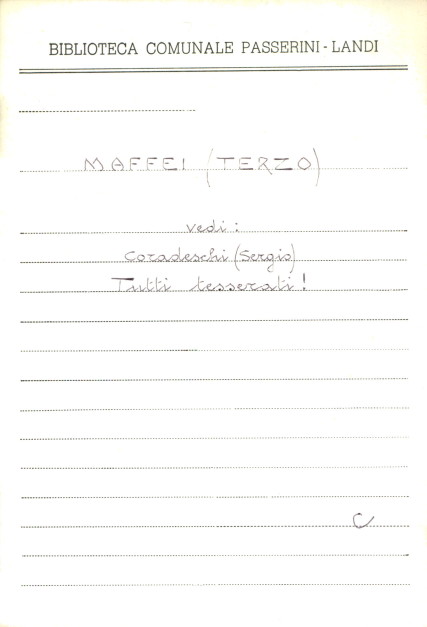 BIBLIOTECA COMUNALE PASSERINI - LANDI
MAFFEI (TERZO)
vedi:
Coradeschi (Sergio)
Tutti tesserati!
C